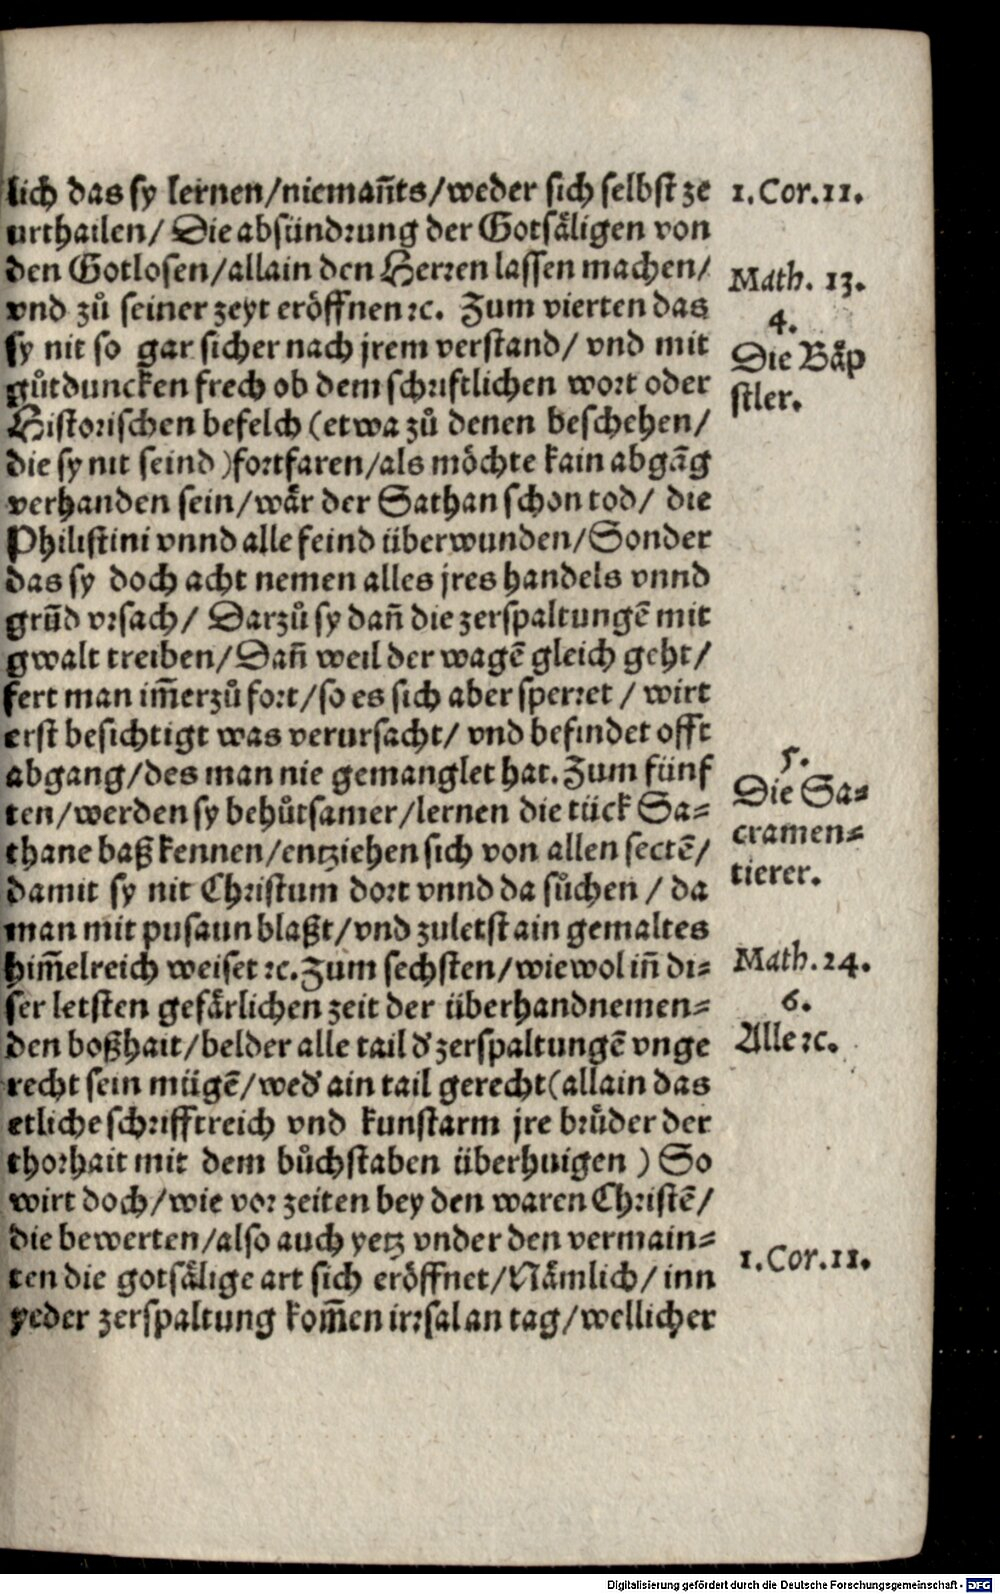 lich das sy lernen/niemañts/weder sich selbst ze
urthailen/ Die absündrung der Gotsåligen von
den Gotlosen/allain den Herren lassen machen/
vnd zů seiner zeyt eröffnen ꝛc. Zum vierten das
sy nit so gar sicher nach jrem verstand/ vnd mit
gůtduncken frech ob dem schrifftlichen wort oder
Historischen befelch (etwa zů denen beschehen/
die sy nit seind )fortfaren/als möchte kain abgãg
verhanden sein/wår der Sathan schon tod/ die
Philistini vnnd alle feind überwunden/Sonder
das sy doch acht nemen alles jres handels vnnd
grũd vrsach/ Darzů sy dañ die zerspaltungẽ mit
gwalt treiben/Dañ weil der wagẽ gleich geht/
fert man im̃erzů fort/so es sich aber sperret / wirt
erst besichtigt was verursacht/ vnd befindet offt
abgang/des man nie gemanglet hat. Zum fünf
ten/werden sy behůtsamer/lernen die tück Sa⸗
thane baß kennen/entziehen sich von allen sectẽ/
damit sy nit Christum dort vnnd da sůchen / da
man mit pusaun blaßt/vnd zuletst ain gemaltes
him̃elreich weiset ꝛc. Zum sechsten/wiewol iñ di⸗
ser letsten gefårlichen zeit der überhandnemen⸗
den boßhait/belder alle tail d' zerspaltungẽ vnge
recht sein mügẽ/wed' ain tail gerecht(allain das
etliche schrifftreich vnd kunstarm jre brůder der
thorhait mit dem bůchstaben überhuigen ) So
wirt doch/wie vor zeiten bey den waren Christẽ/
die bewerten/also auch yetz vnder den vermain⸗
ten die gotsålige art sich eröffnet/Nåmlich/ inn
yeder zerspaltung kom̃en irrsal an tag/wellicher
1. Cor. 11.
Math. 13.
4.
Die Båp
stler.
5.
Die Sa⸗
cramen⸗
tierer.
Math. 24.
6.
Alle ꝛc.
1. Cor. 11.
Digitalisierung gefördert durch die Deutsche Forschungsgemeinschaft - DFG